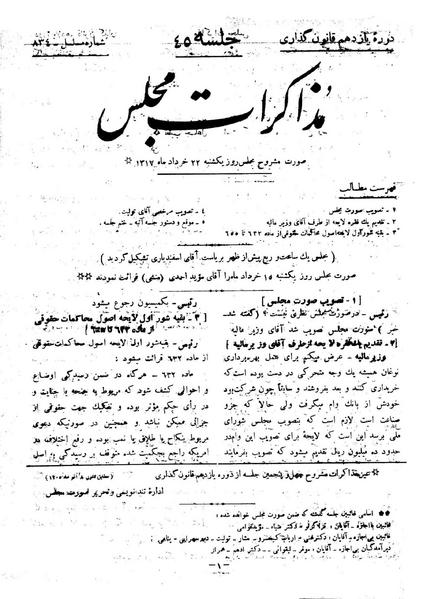 دورهٔ یازدهم قانون گذاری
جلسه ۴۵
شماره مسلسل - ۸۳۴
مذاکرات مجلس
صورت مشروح مجلس روز یکشنبه ۲۲ خرداد ماه ۱۳۱۷ *
فهرست مطالب
۱ - تصویب صورت مجلس
۲ - تقدیم یک فقره لایحه از طرف آقای وزیر مالیه
۳ - بقیه شور اول لایحه اصول محاکمات حقوقی از ماده ۶۳۲ تا ۶۵۵
۴ - تصویب مرخصی آقای تولیت.
۵ - موقع و دستور جلسه آتیه - ختم جلسه.
(مجلس یک ساعت و ربع پیش از ظهر بریاست آقای اسفندیاری تشکیل گردید)
صورت مجلس روز یکشنبه ۱۵ خرداد ماه را آقای مؤید احمدی (منشی) قرائت نمودند
[۱ - تصویب صورت مجلس]
رئیس - در صورت مجلس نظری نیست؟ (گفته شد
خیر) صورت مجلس تصویب شد آقای وزیر مالیه
[۲ - تقدیم یک فقره لایحه از طرف آقای وزیر مالیه]
وزیر مالیه - عرض میکنم برای عمل بهره‌برداری
نوغان همیشه یک وجه متحرکی در دست بوده است که
خریداری کنند و بعد بفروشند و سابقاً چون شرکت بود
خودش از بانک وام میگرفت ولی حالا که جزو
صناعت است لازم است که بتصویب مجلس شورای
ملی برسد این است که لایحهٔ برای تصویب این وام در
حدود ده میلیون ریال تقدیم میشود که تصویب بفرمایند
رئیس - بکمیسیون رجوع میشود
[۳ - بقیه شور اول لایحه اصول محاکمات حقوقی
از ماده ۶۳۲ تا ۶۵۵]
رئیس - بقیه شور اول لایحه اصول محاکمات حقوقی
از ماده ۶۳۲ قرائت میشود:
ماده ۶۳۲ - هرگاه در ضمن رسیدگی اوضاع
و احوالی کشف شود که مربوط به جنحه یا جنایت و
در رأی حکم مؤثر بوده و تفکیک جهت حقوقی از
جزائی ممکن نباشد و همچنین در صورتیکه دعوی
مربوط بنکاح یا طلاق یا نسب بوده و رفع اختلاف در
امریکه راجع بمحکمه شده متوقف بر رسیدگی به اصل
* عین مذاکرات مشروح چهل و پنجمین جلسه از دوره یازدهم قانون گذاری
اداره تند نویسی و تحریر صورت مجلس
* اسامی غائبین جلسه گذشته که ضمن صورت مجلس خوانده شده:
غائبین با اجازه - آقایان:
غائبین بی اجازه - آقایان:
دیر آمدگان بی اجازه - آقایان:
- ۱ -